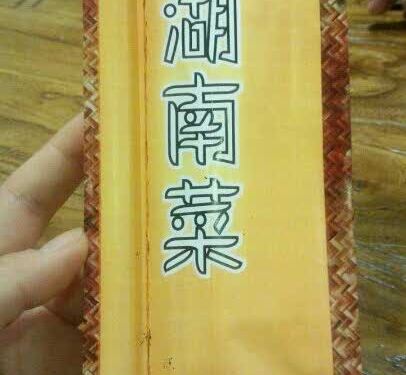 湖南菜